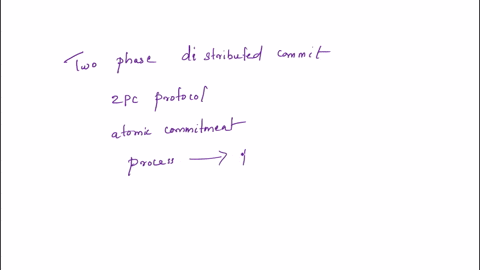 Two phase distributed commit
2pc protocol
atomic commitment
process →